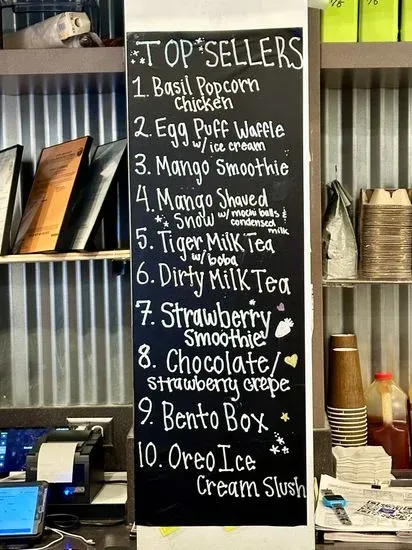 TOP SELLERS
1. Basil Popcorn
Chicken
2. Egg Puff Waffle
w/ ice cream
3. Mango Smoothie
4. Mango Shaved
Snow w/ mochi balls &
condensed
milk
5. Tiger Milk Tea
w/ boba
6. Dirty Milk Tea
7. Strawberry
Smoothie
8. Chocolate/
strawberry crepe
9. Bento Box
10. Oreo Ice
Cream Slush